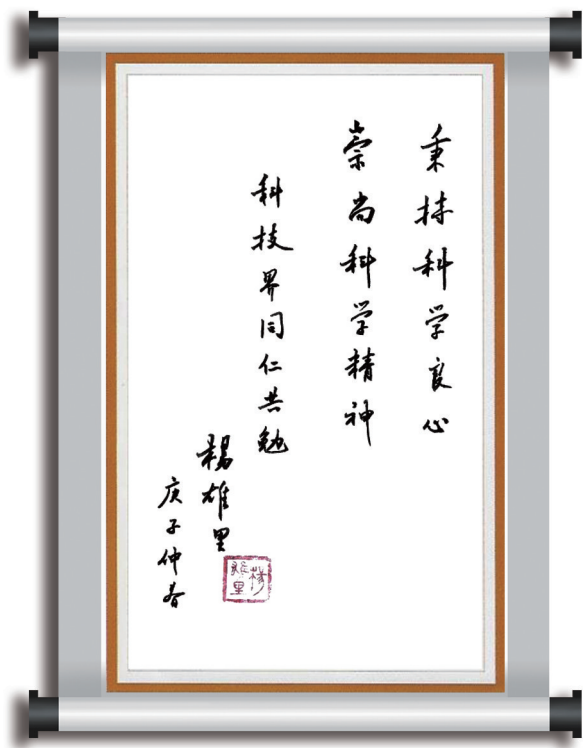 秉持科学良心
崇尚科学精神
科技界同仁共勉
楊雄里
庚子仲春
楊雄里